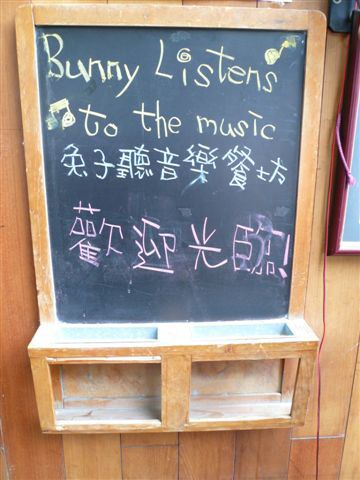 Bunny Listens
to the music
兔子聽音樂餐坊
歡迎光臨!